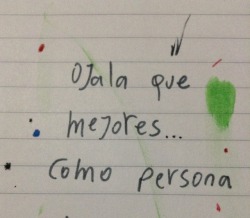 Ojala que
mejores...
como persona